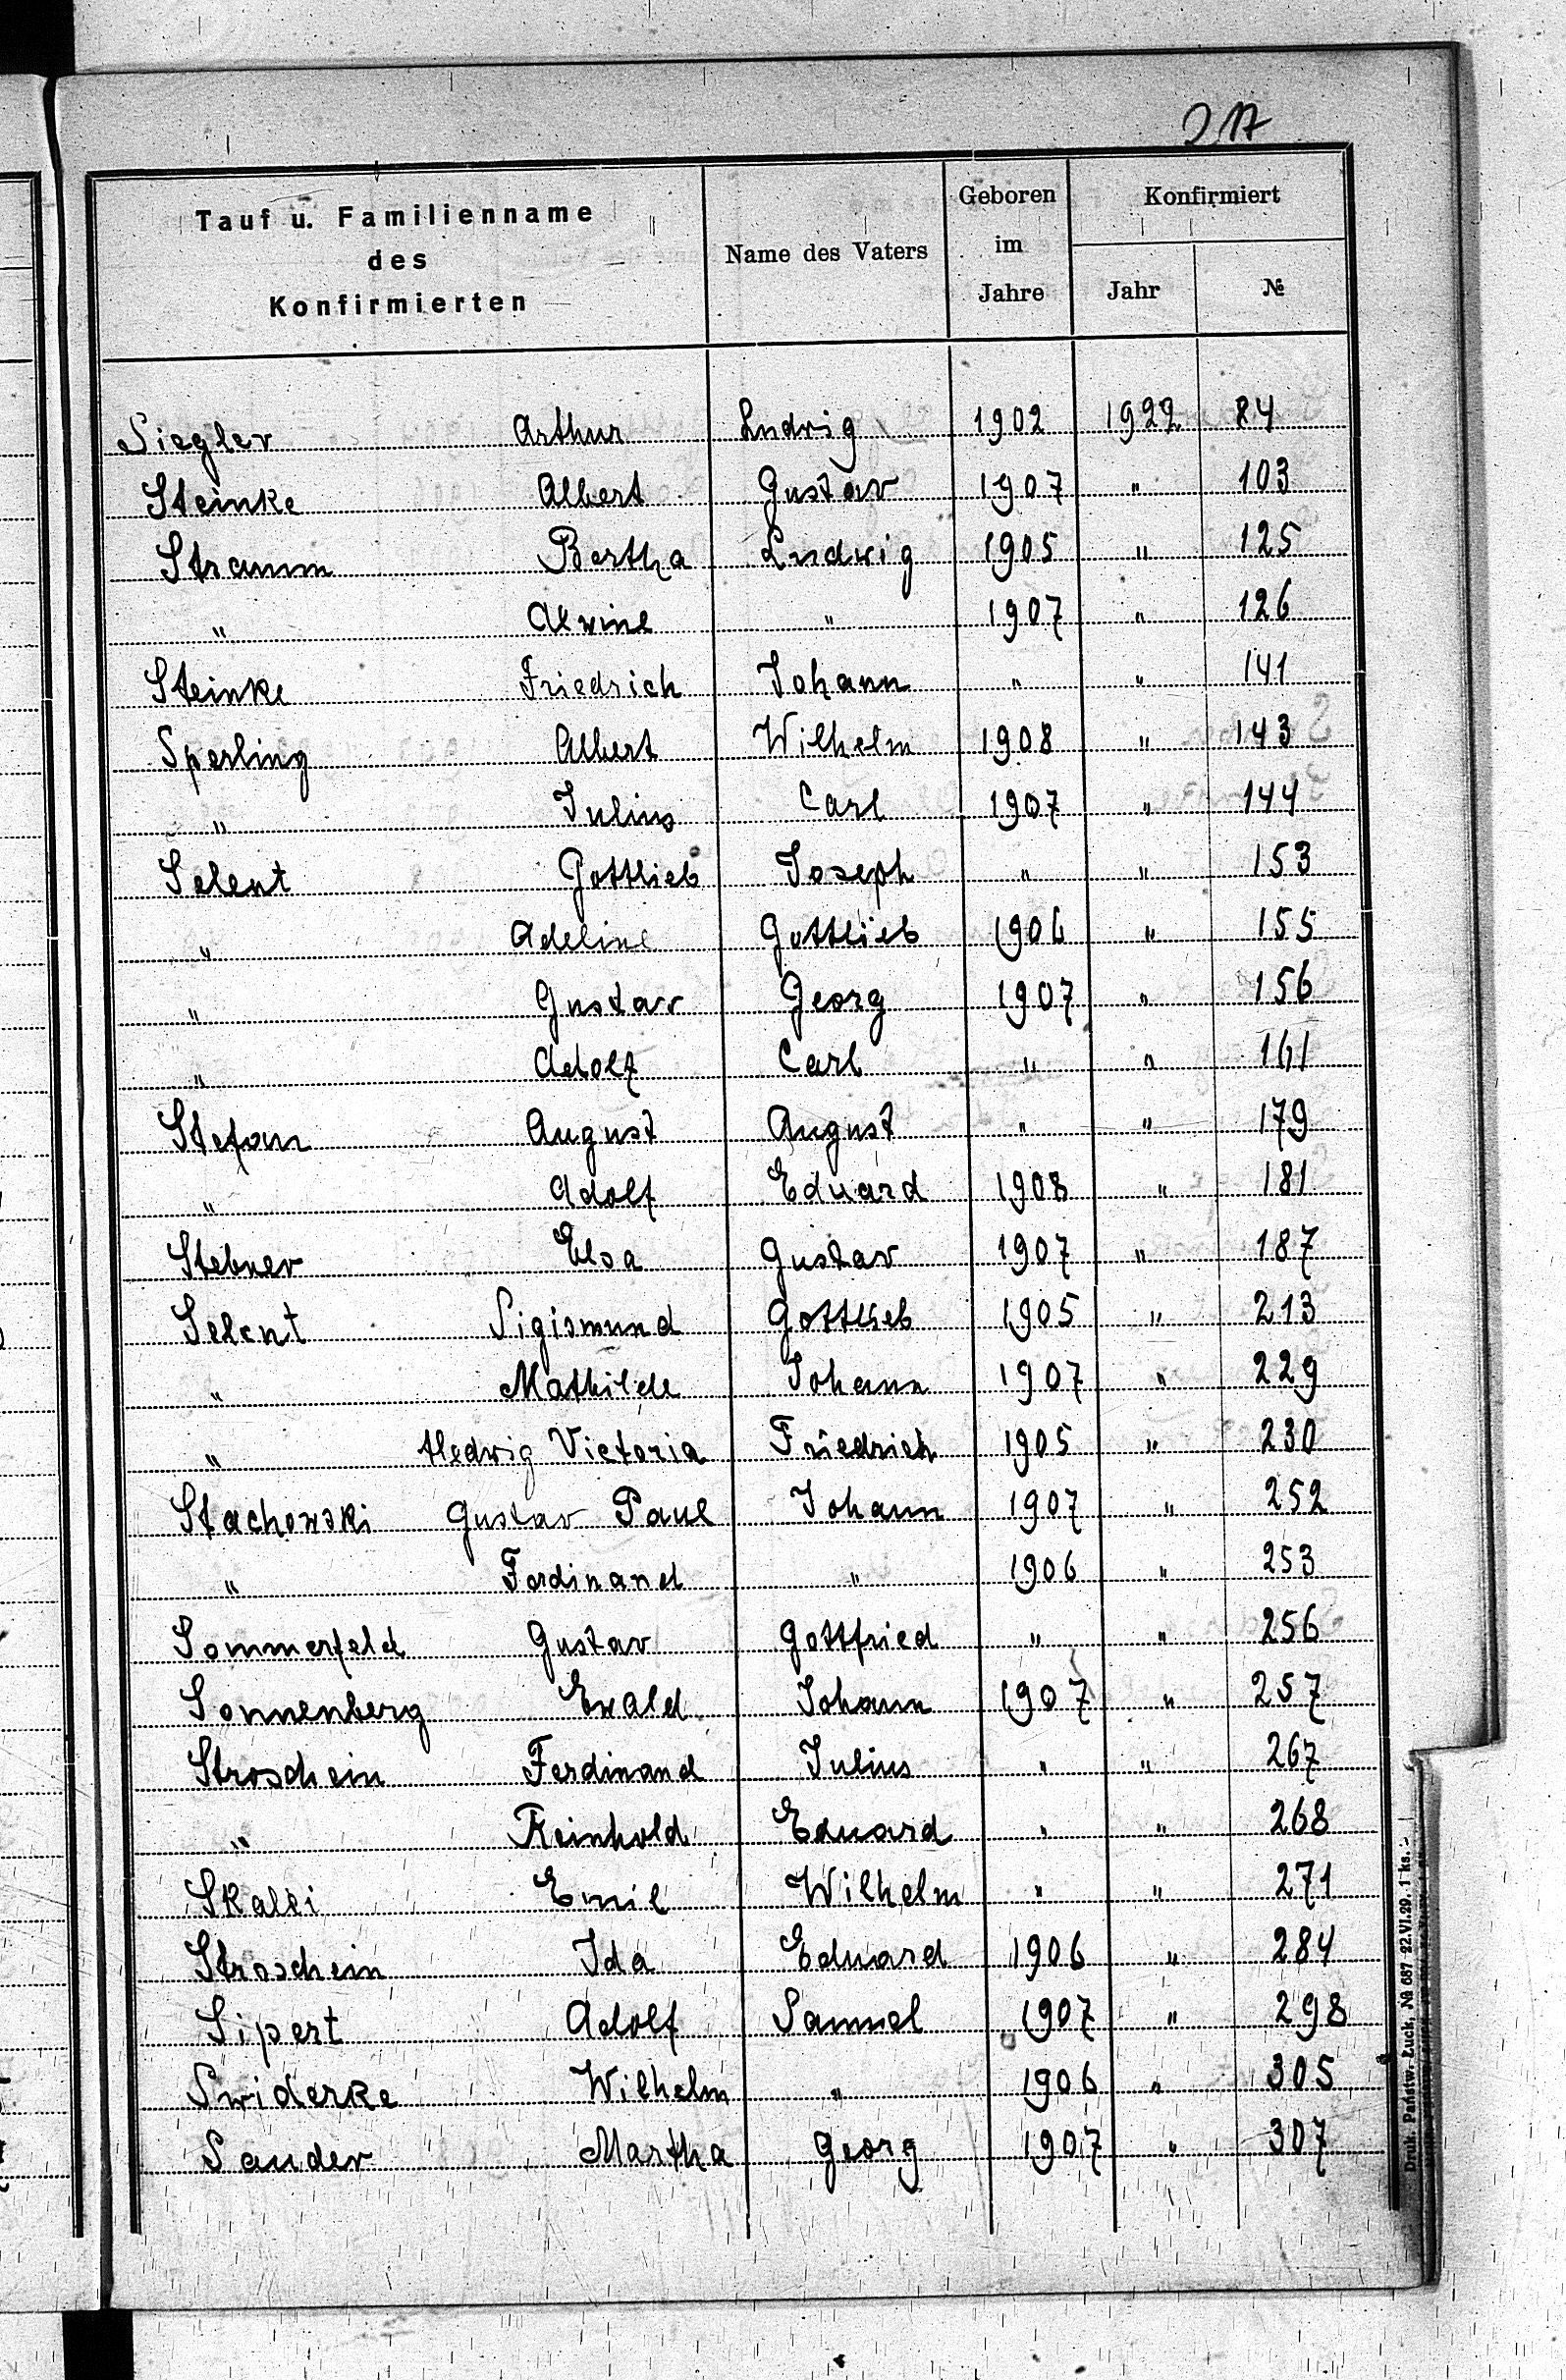 217
Tauf u. Familienname des Konfirmierten | Name des Vaters | Geboren im Jahre | Konfirmiert Jahr | №
Siegler Arthur Ludwig 1902 1922 84
Steinke Albert Gustav 1907 " 103
Stramm Bertha Ludwig 1905 " 125
" Alwine " 1907 " 126
Steinke Friedrich Johann " " 141
Sperling Albert Wilhelm 1908 " 143
" Julius Carl 1907 " 144
Selent Gottlieb Joseph " " 153
" Adeline Gottlieb 1906 " 155
" Gustav Georg 1907 " 156
" Adolf Carl " " 161
Stefan August August " " 179
" Adolf Eduard 1908 " 181
Stebner Elsa Gustav 1907 " 187
Selent Sigismund Gottlieb 1905 " 213
" Mathilde Johann 1907 " 229
" Hedwig Victoria Friedrich 1905 " 230
Stachowski Gustav Paul Johann 1907 " 252
" Ferdinand " 1906 " 253
Sommerfeld Gustav Gottfried " " 256
Sonnenberg Ewald Johann 1907 " 257
Stroschein Ferdinand Julius " " 267
" Reinhold Eduard " " 268
Skalei Emil Wilhelm " " 271
Stroschein Ida Eduard 1906 " 284
Sipert Adolf Samuel 1907 " 298
Swiderke Wilhelm " 1906 " 305
Sander Martha Georg 1907 " 307
Druk. Państw. Łuck, № 687 22.VI.29. 1 ks.